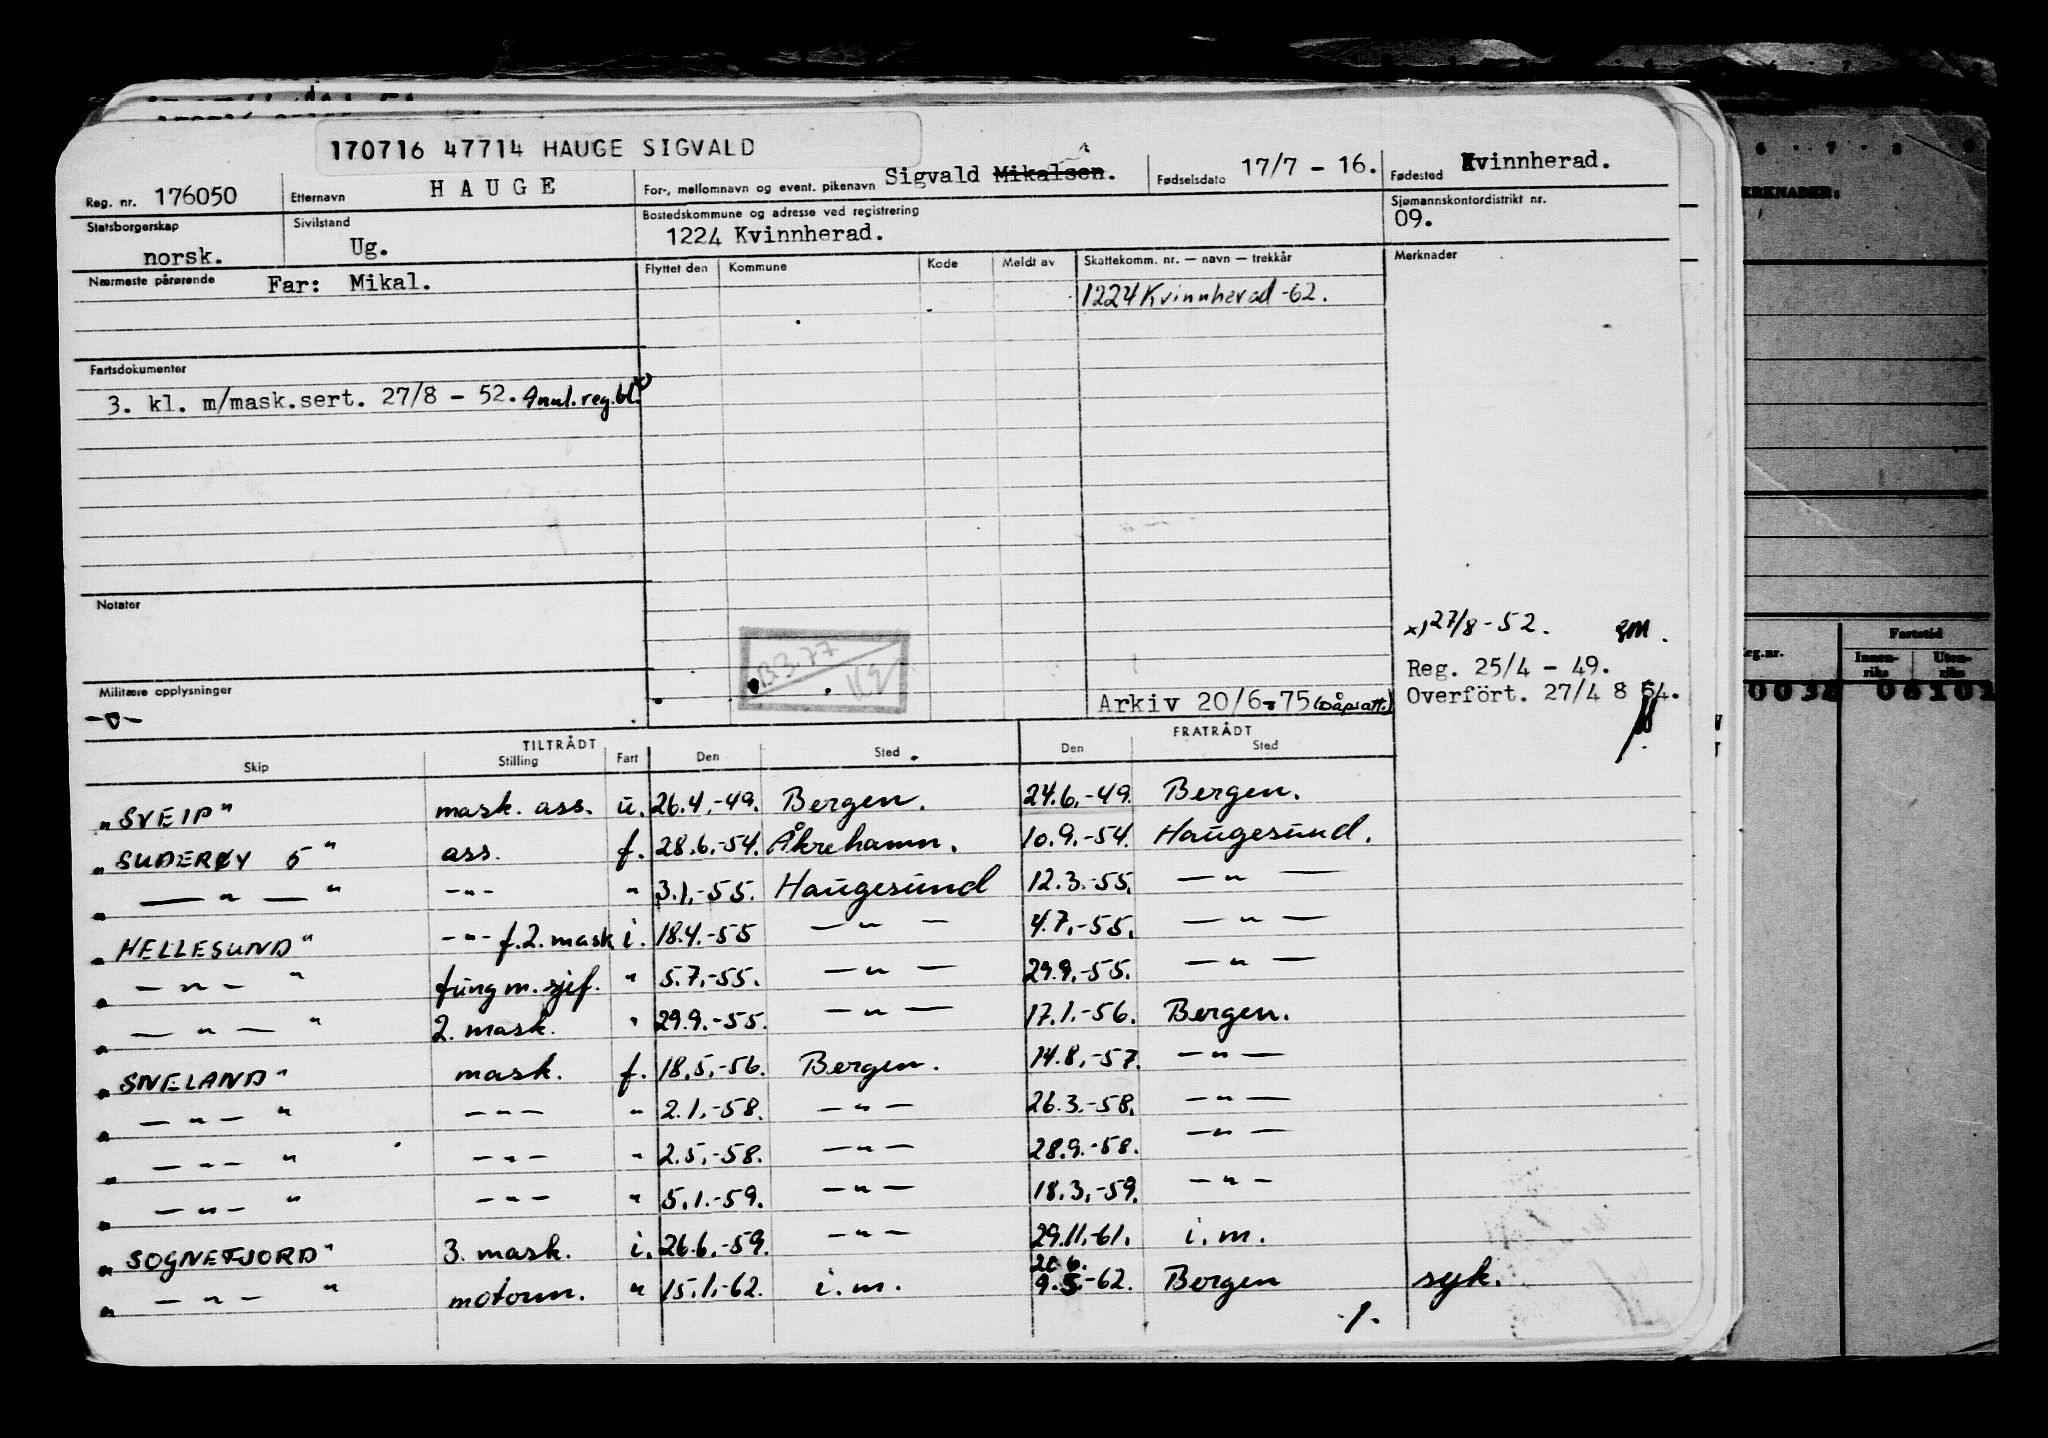 170716 47714 HAUGE SIGVALD
Reg. nr. 176050 Etternavn HAUGE For-, mellomnavn og event. pikenavn Sigvald Mikalsen. Fødselsdato 17/7 - 16. Fødested Kvinnherad.
Statsborgerskap norsk. Sivilstand Ug. Bostedskommune og adresse ved registrering 1224 Kvinnherad. Sjømannskontordistrikt nr. 09.
Nærmeste pårørende Far: Mikal. Flyttet den Kommune Kode Meldt av Skattekomm. nr. — navn — trekkår Merknader
1224 Kvinnherad -62.
Fartsdokumenter
3. kl. m/mask.sert. 27/8 - 52. Anul. reg. bl. x)
Notater
x) 27/8 - 52.
Reg. 25/4 - 49.
Militære opplysninger
Arkiv 20/6-75 (Dåpsatt.) Overfört. 27/4 8 64.
TILTRÅDT FRATRÅDT
Skip Stilling Fart Den Sted Den Sted
"SVEIP" mask. ass. u. 26.4.-49. Bergen. 24.6.-49. Bergen.
"SUDERØY 5" ass. f. 28.6.-54. Åkrehamn. 10.9.-54. Haugesund.
" — " — " - " - " 3.1.-55. Haugesund 12.3.-55. — " —
"HELLESUND" - " - f. 2. mask i. 18.4.-55 — " — 4.7.-55. — " —
" — " — " fung m. sjef. " 5.7.-55. — " — 29.9.-55. — " —
" — " — " 2. mask. " 29.9.-55. — " — 17.1.-56. Bergen.
"SNELAND" mask. f. 18.5.-56. Bergen. 14.8.-57. — " —
" — " — " - " - " 2.1.-58. — " — 26.3.-58. — " —
" — " — " - " - " 2.5.-58. — " — 28.9.-58. — " —
" — " — " - " - " 5.1.-59. — " — 18.3.-59. — " —
"SOGNEFJORD" 3. mask. i. 26.6.-59. — " — 29.11.-61. i. m.
20 6.
" — " — " motorm. " 15.1.-62. i. m. 9.5.-62. Bergen syk.
Fartstid
Innen-riks Uten-riks